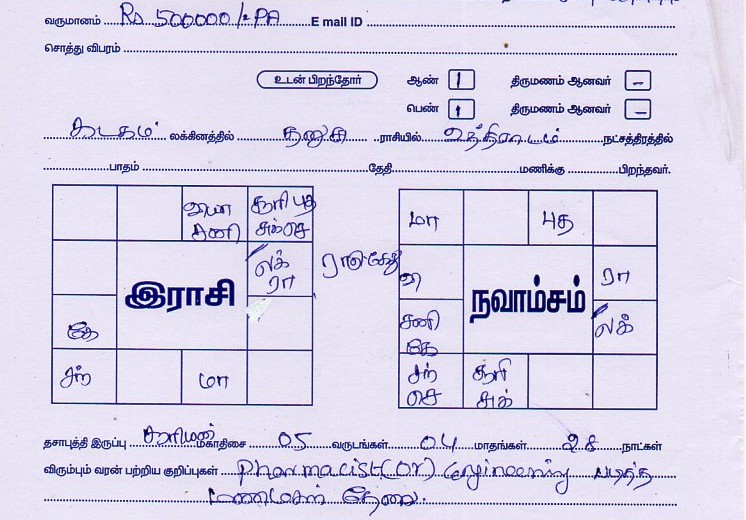 வருமானம் Rs 500000/- PA E mail ID
சொத்து விபரம்
உடன் பிறந்தோர் ஆண் 1 திருமணம் ஆனவர் –
பெண் 1 திருமணம் ஆனவர் –
கடகம் லக்கினத்தில் தனுசு ராசியில் உத்திராடம் நட்சத்திரத்தில்
பாதம் தேதி மணிக்கு பிறந்தவர்.
சனி சூரி புத
சுக் செ
லக்
ரா
இராசி
கே
சந் மா
ராகு கேது
மா புத
ரா
நவாம்சம்
சனி
கே
லக்
சந்
செ
சூரி
சுக்
தசாபுத்தி இருப்பு சூரியன் மகாதிசை 05 வருடங்கள் 04 மாதங்கள் 28 நாட்கள்
விரும்பும் வரன் பற்றிய குறிப்புகள் Pharmacist (Or) Engineering படித்த
மணமகன் தேவை.